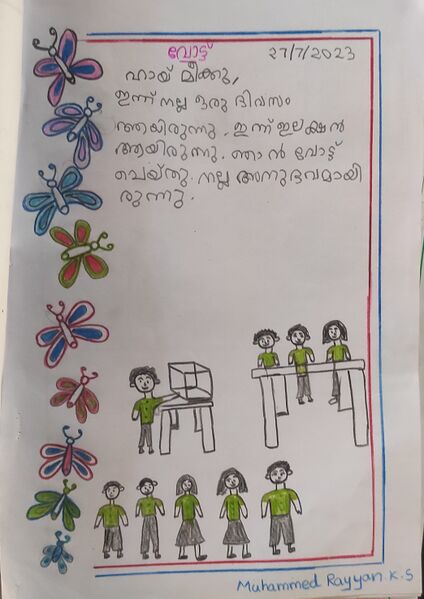 വോട്ട് 27/7/2023
ഹായ് മീക്കു,
ഇന്ന് നല്ല ഒരു ദിവസം
ആയിരുന്നു. ഇന്ന് ഇലക്ഷൻ
ആയിരുന്നു. ഞാൻ വോട്ട്
ചെയ്തു. നല്ല അനുഭവമായി
രുന്നു.
Muhammed Rayyan.K.S